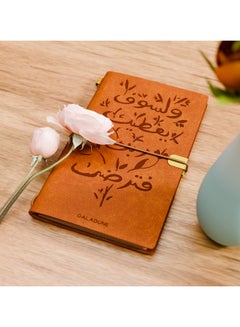 ولسوف
يعطيك
ربك
فترضى
GALADORE